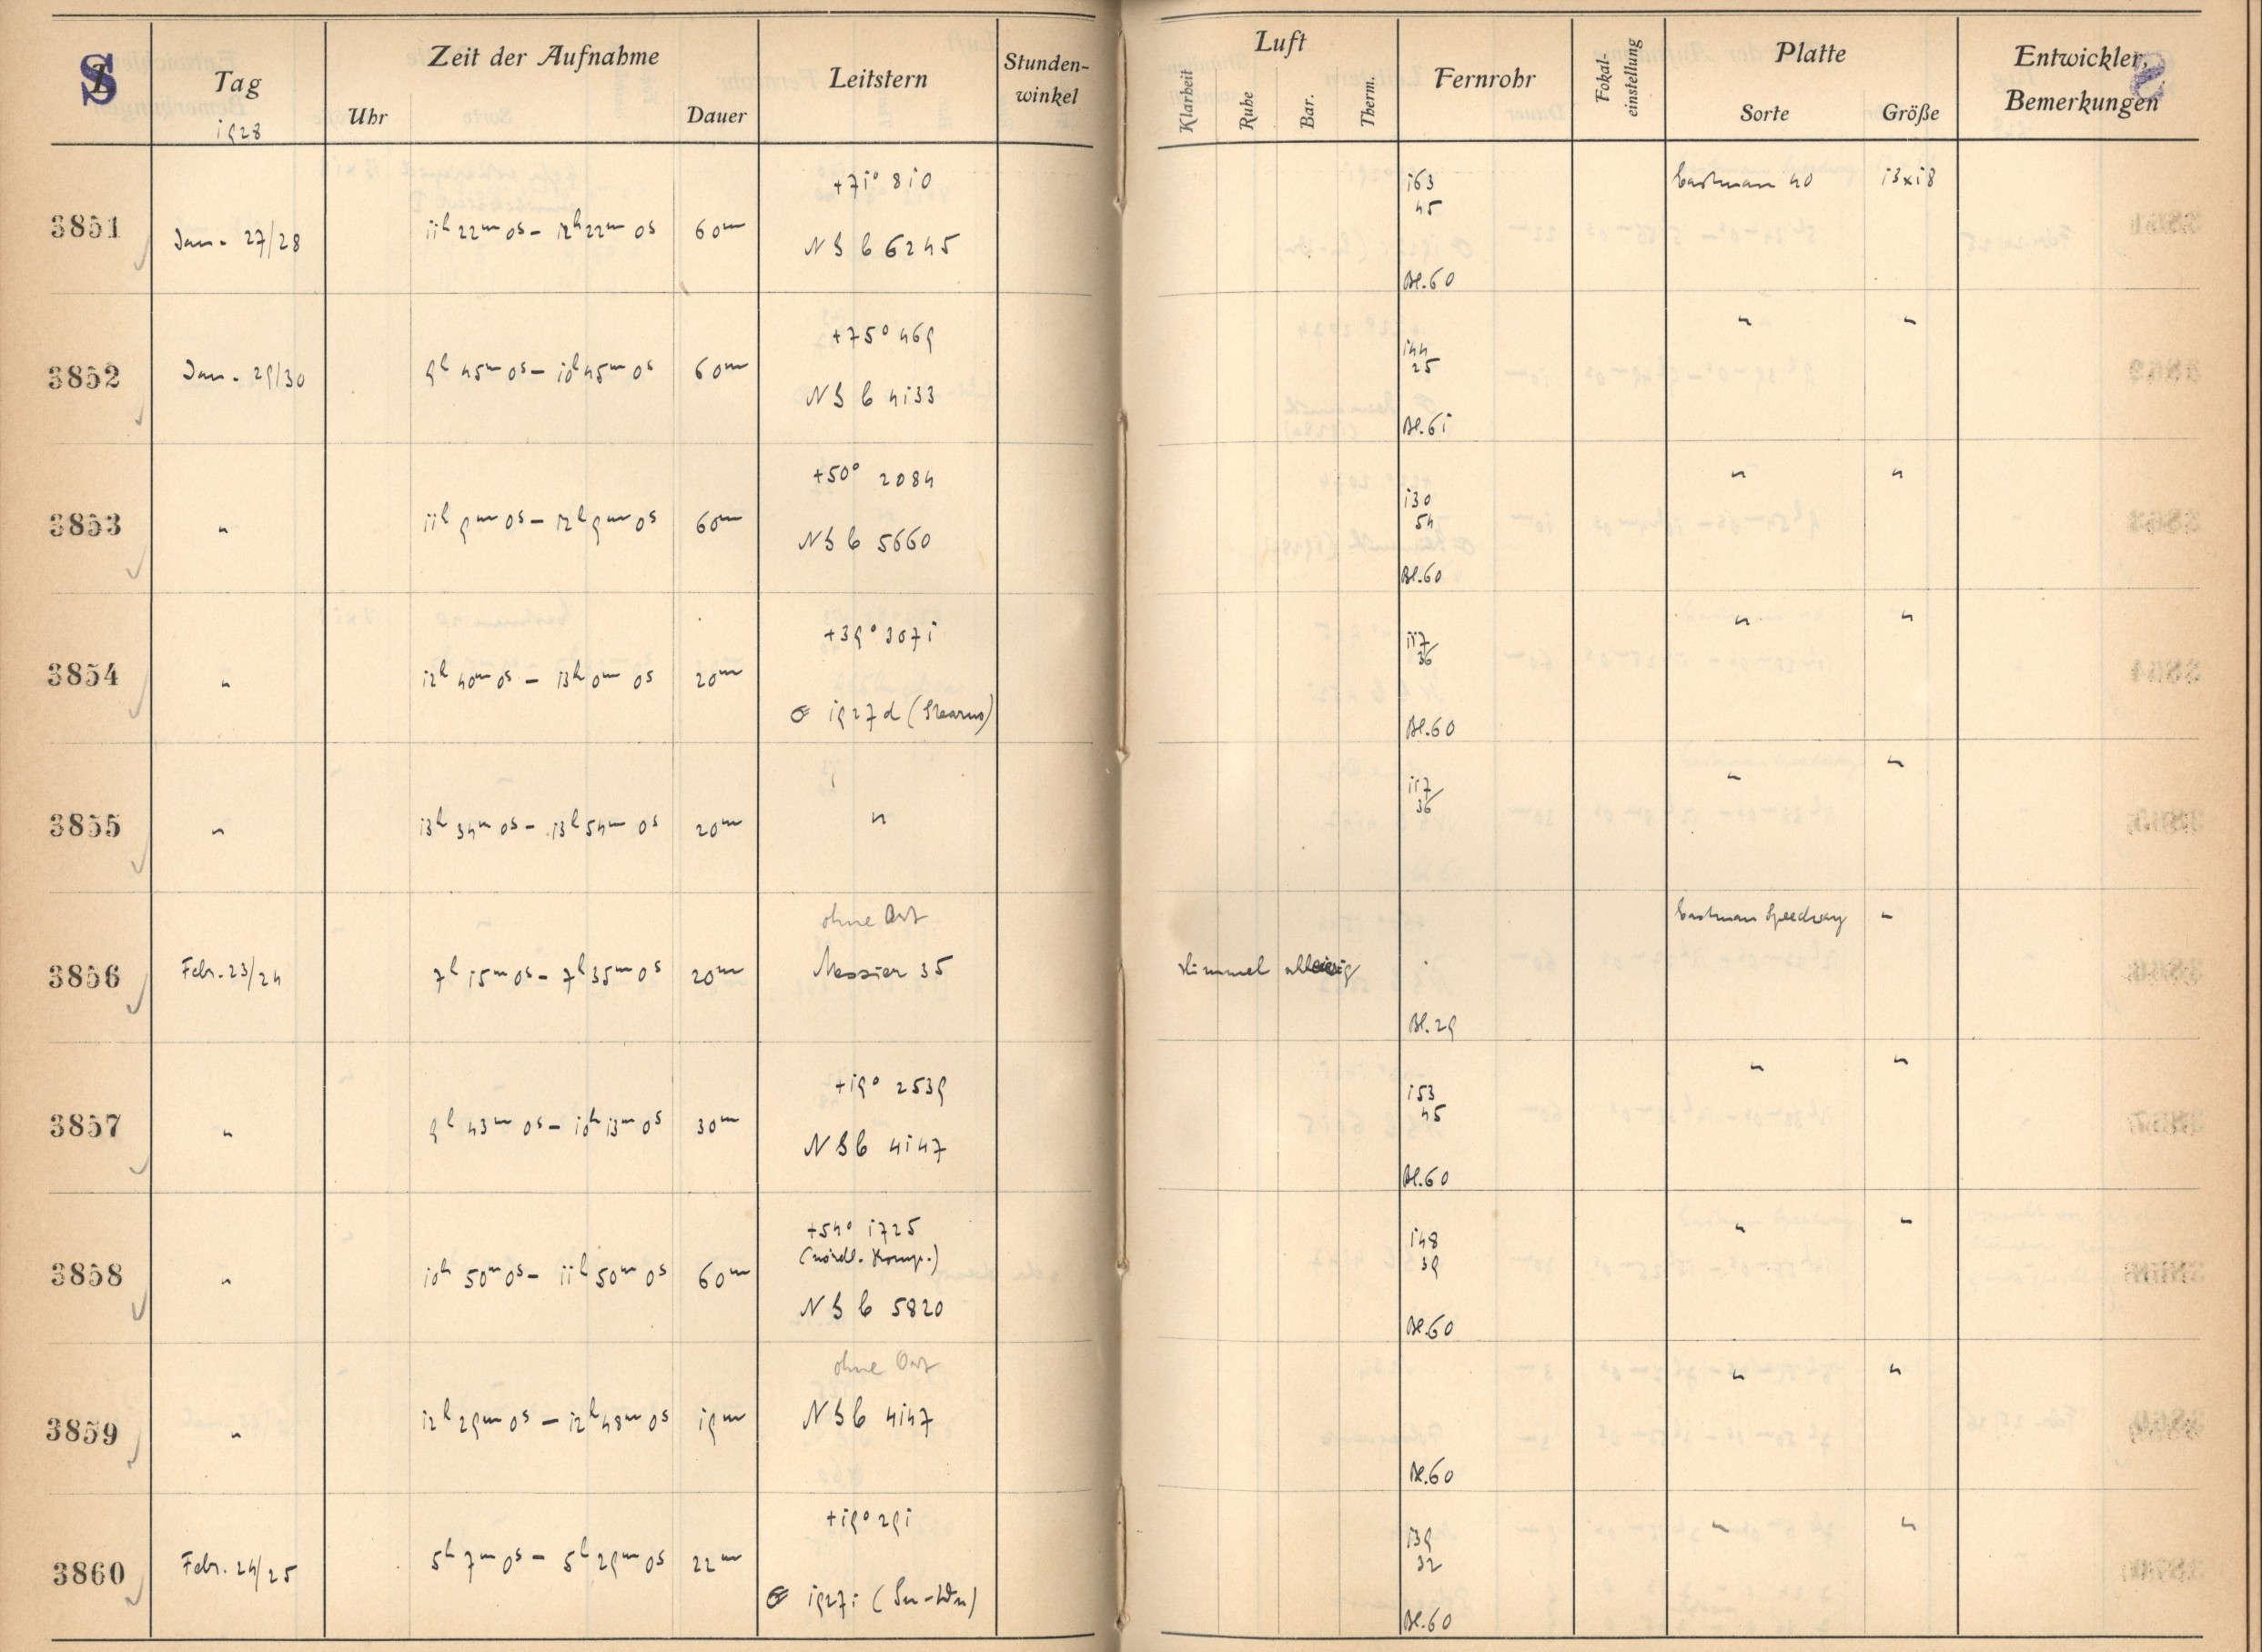 S
Tag
1928
Zeit der Aufnahme
Uhr
Dauer
Leitstern
Stunden-
winkel
Luft
Klarheit
Ruhe
Bar.
Therm.
Fernrohr
Fokal-
einstellung
Platte
Sorte
Größe
Entwickler,
Bemerkungen
3851
Jan. 27/28
11h 22m 0s – 12h 22m 0s
60m
+71° 810
NGC 6245
163
45
Bl. 60
Eastman 40
13x18
3852
Jan. 29/30
9h 45m 0s – 10h 45m 0s
60m
+75° 469
NGC 4133
144
25
Bl. 61
"
"
3853
"
11h 9m 0s – 12h 9m 0s
60m
+50° 2084
NGC 5660
130
54
Bl. 60
"
"
3854
"
12h 40m 0s – 13h 0m 0s
20m
+39° 3071
☄ 1927 d (Stearns)
117
36
Bl. 60
"
"
3855
"
13h 34m 0s – 13h 54m 0s
20m
"
117
36
"
"
3856
Febr. 23/24
7h 15m 0s – 7h 35m 0s
20m
ohne Ort
Messier 35
Himmel
Bl. 29
Eastman Speedway
"
3857
"
9h 43m 0s – 10h 13m 0s
30m
+19° 2539
NGC 4147
153
45
Bl. 60
"
"
3858
"
10h 50m 0s – 11h 50m 0s
60m
+54° 1725
(nördl. Komp.)
NGC 5820
148
39
Bl. 60
"
"
3859
"
12h 29m 0s – 12h 48m 0s
19m
ohne Ort
NGC 4147
Bl. 60
"
"
3860
Febr. 24/25
5h 7m 0s – 5h 29m 0s
22m
+19° 291
☄ 1927 i
139
32
Bl. 60
"
"